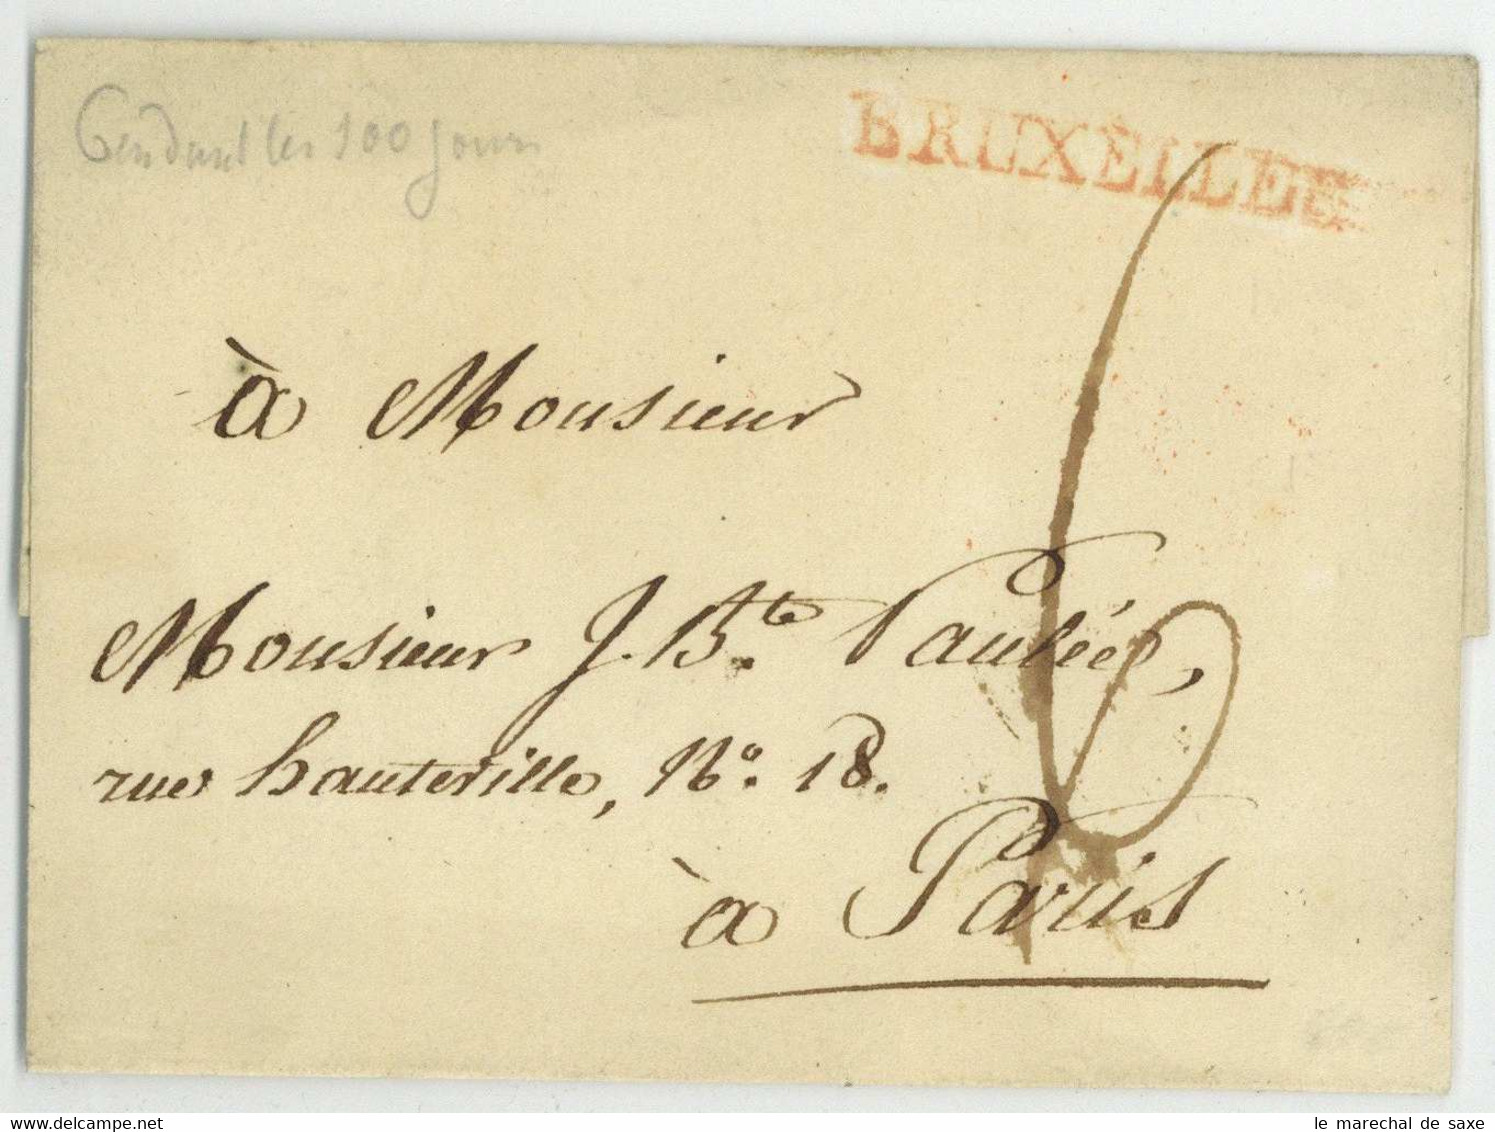 Pendant les 100 jours
BRUXELLES
à Monsieur
Monsieur J. Bte. Paulée,
rue hauteville, No. 18.
à Paris
6
delcampe.net
le marechal de saxe